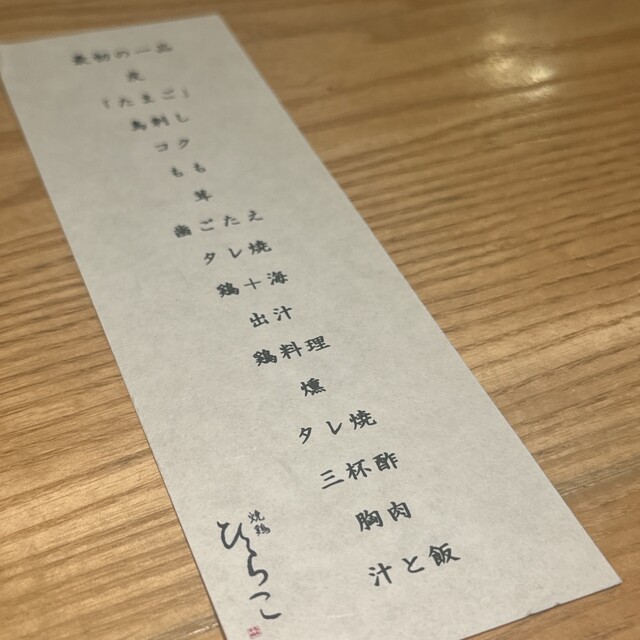 最初の一品
「たまご」
鳥刺し
コク
もも
茸
歯ごたえ
タレ焼
鶏十海
出汁
鶏料理
燻
タレ焼
三杯酢
胸肉
汁と飯
焼鶏
ひらこ